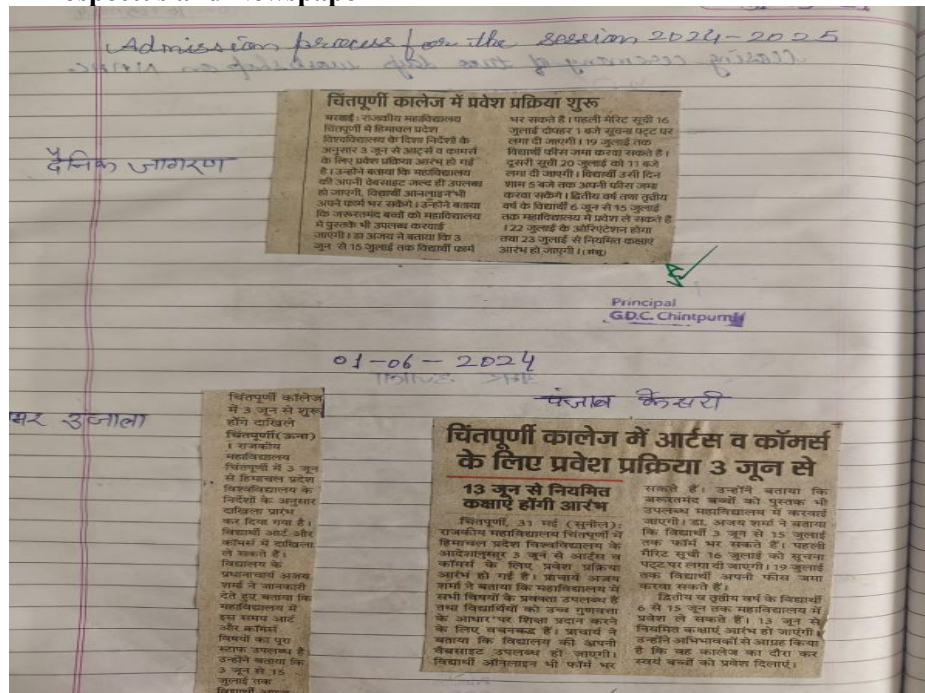 Admission process for the session 2024-2025
दैनिक जागरण
चिंतपूर्णी कालेज में प्रवेश प्रक्रिया शुरू
भरवाईं : राजकीय महाविद्यालय
चिंतपूर्णी में हिमाचल प्रदेश
विश्वविद्यालय के दिशा निर्देशों के
अनुसार 3 जून से आर्ट्स व कामर्स
के लिए प्रवेश प्रक्रिया आरंभ हो गई
है। उन्होंने बताया कि महाविद्यालय
की अपनी वेबसाइट जल्द ही उपलब्ध
हो जाएगी, विद्यार्थी आनलाइन भी
अपने फार्म भर सकेंगे। उन्होंने बताया
कि जरूरतमंद बच्चों को महाविद्यालय
में पुस्तकें भी उपलब्ध करवाई
जाएंगी। डा अजय ने बताया कि 3
जून से 15 जुलाई तक विद्यार्थी फार्म
भर सकते हैं। पहली मेरिट सूची 16
जुलाई दोपहर 1 बजे सूचना पट्ट पर
लगा दी जाएगी। 19 जुलाई तक
विद्यार्थी फीस जमा करवा सकते हैं।
दूसरी सूची 20 जुलाई को 11 बजे
लगा दी जाएगी। विद्यार्थी उसी दिन
शाम 5 बजे तक अपनी फीस जमा
करवा सकेंगे। द्वितीय वर्ष तथा तृतीय
वर्ष के विद्यार्थी 6 जून से 15 जुलाई
तक महाविद्यालय में प्रवेश ले सकते हैं
। 22 जुलाई के ओरिएंटेशन होगा
तथा 23 जुलाई से नियमित कक्षाएं
आरंभ हो जाएगी। (संसू)
Principal
G.D.C. Chintpurni
01-06-2024
उजाला
चिंतपूर्णी कॉलेज
में 3 जून से शुरू
होंगे दाखिले
चिंतपूर्णी (ऊना)
। राजकीय
महाविद्यालय
चिंतपूर्णी में 3 जून
से हिमाचल प्रदेश
विश्वविद्यालय के
निर्देशों के अनुसार
दाखिला प्रारंभ
कर दिया गया है।
विद्यार्थी आर्ट और
कॉमर्स में दाखिला
ले सकते हैं।
विद्यालय के
प्रधानाचार्य अजय
शर्मा ने जानकारी
देते हुए बताया कि
महाविद्यालय में
इस समय आर्ट
और कॉमर्स
विषयों का पूरा
स्टाफ उपलब्ध है।
उन्होंने बताया कि
3 जून से 15
जुलाई तक
पंजाब केसरी
चिंतपूर्णी कालेज में आर्टस व कॉमर्स
के लिए प्रवेश प्रक्रिया 3 जून से
13 जून से नियमित
कक्षाएं होंगी आरंभ
चिंतपूर्णी, 31 मई (सुनील):
राजकीय महाविद्यालय चिंतपूर्णी में
हिमाचल प्रदेश विश्वविद्यालय के
आदेशानुसार 3 जून से आर्टस व
कॉमर्स के लिए प्रवेश प्रक्रिया
आरंभ हो गई है। प्राचार्य अजय
शर्मा ने बताया कि महाविद्यालय में
सभी विषयों के प्रवक्ता उपलब्ध हैं
तथा विद्यार्थियों को उच्च गुणवत्ता
के आधार पर शिक्षा प्रदान करने
के लिए वचनबद्ध हैं। प्राचार्य ने
बताया कि विद्यालय की अपनी
वैबसाइट उपलब्ध हो जाएगी।
विद्यार्थी ऑनलाइन भी फॉर्म भर
सकते हैं। उन्होंने बताया कि
जरूरतमंद बच्चों को पुस्तक भी
उपलब्ध महाविद्यालय में करवाई
जाएगी। डा. अजय शर्मा ने बताया
कि विद्यार्थी 3 जून से 15 जुलाई
तक फॉर्म भर सकते हैं। पहली
मैरिट सूची 16 जुलाई को सूचना
पट्ट पर लगा दी जाएगी। 19 जुलाई
तक विद्यार्थी अपनी फीस जमा
करवा सकते हैं।
द्वितीय व तृतीय वर्ष के विद्यार्थी
6 से 15 जून तक महाविद्यालय में
प्रवेश ले सकते हैं। 13 जून से
नियमित कक्षाएं आरंभ हो जाएंगी।
उन्होंने अभिभावकों से आग्रह किया
है कि वह कालेज का दौरा कर
स्वयं बच्चों को प्रवेश दिलाएं।